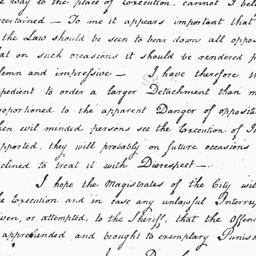 way to the place of Execution, cannot I bel
certained — To me it appears important that
the Law should be seen to bear down all oppos
at on such occasions it should be rendered p
lemn and impressive — I have therefore th
pedient to order a larger Detachment than m
roportioned to the apparent Danger of opposit
hen evil minded persons see the Execution of
pported, they will probably on future occasions
clined to treat it with Disrespect —
I hope the Magistrates of the City wil
he Execution and in case any unlawful Interru
iven, or attempted, to the Sheriff, that the Offen
apprehended and brought to exemplary Punish